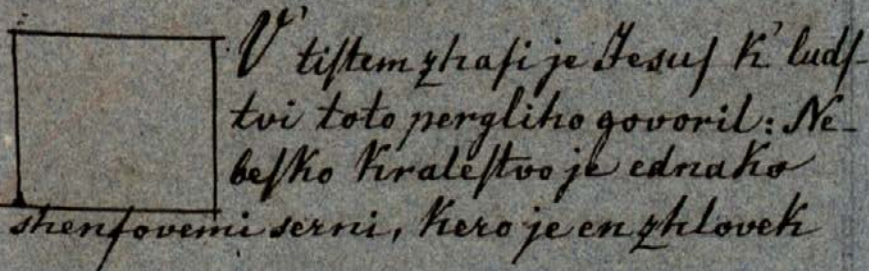 V' tiſtem zhaſi je Jesuſ k' ludſ-
tvi toto pergliho govoril: Ne-
beſko kraleſtvo je ednako
shenfovemi serni, kero je en zhlovek